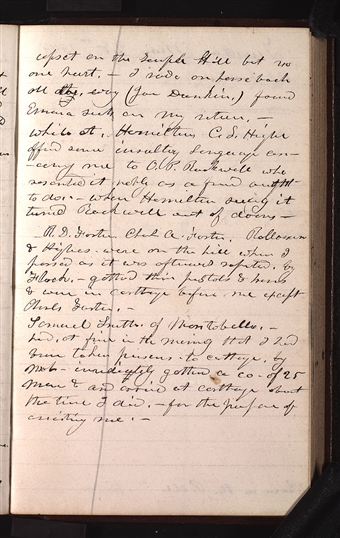 upset on the Temple Hill but no
one hurt. — I rode on horse back
all the way (Joe Duncan.) found
Emma sick on my return. —
while at. Hamiltons C. L. Higbee
offered some insulting language con-
-cerning me to O. P. Rockwell who
resented it nobly as a friend ought
to do. — when Hamilton seeing it
turned Rockwell out of doors —
R. D. Foster Chal A. Foster.
& Higbee were on the hill when I
passed as it was afterward reported. by
— gotted their pistols & horses
& were in carthage before me except
Charls Foster. —
Samuel Smith. of Montebello. —
had, at five in the morning that I had
been taken prisoner to carthage, by
mob — immediately gotten a co. of 25
men & and arrived at carthage about
the time I did. — for the purpose of
assisting me. —